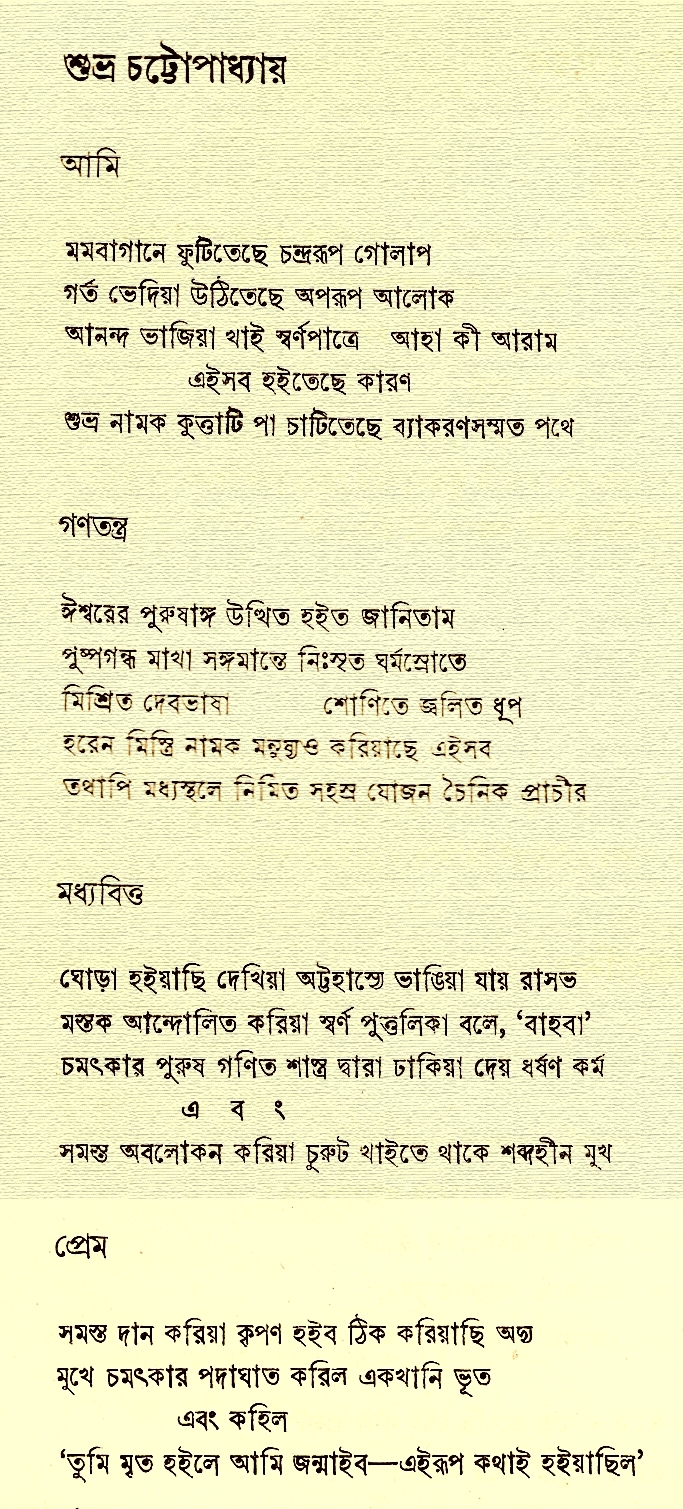 শুভ্র চট্টোপাধ্যায়
আমি
মমবাগানে ফুটিতেছে চন্দ্ররূপ গোলাপ
গর্ত ভেদিয়া উঠিতেছে অপরূপ আলোক
আনন্দ ভাজিয়া খাই স্বর্ণপাত্রে আহা কী আরাম
এইসব হইতেছে কারণ
শুভ্র নামক কুত্তাটি পা চাটিতেছে ব্যাকরণসম্মত পথে
গণতন্ত্র
ঈশ্বরের পুরুষাঙ্গ উত্থিত হইত জানিতাম
পুষ্পগন্ধ মাখা সঙ্গমান্তে নিঃসৃত ঘর্মস্রোতে
মিশ্রিত দেবভাষা শোণিতে জ্বলিত ধূপ
হরেন মিস্ত্রি নামক মনুষ্যও করিয়াছে এইসব
তথাপি মধ্যস্থলে নির্মিত সহস্র যোজন চৈনিক প্রাচীর
মধ্যবিত্ত
ঘোড়া হইয়াছি দেখিয়া অট্টহাস্যে ভাঙিয়া যায় রাসভ
মস্তক আন্দোলিত করিয়া স্বর্ণ পুত্তলিকা বলে, ‘বাহবা’
চমৎকার পুরুষ গণিত শাস্ত্র দ্বারা ঢাকিয়া দেয় ধর্ষণ কর্ম
এ ব ং
সমস্ত অবলোকন করিয়া চুরুট খাইতে থাকে শব্দহীন মুখ
প্রেম
সমস্ত দান করিয়া কৃপণ হইব ঠিক করিয়াছি অদ্য
মুখে চমৎকার পদাঘাত করিল একখানি ভূত
এবং কহিল
‘তুমি মৃত হইলে আমি জন্মাইব—এইরূপ কথাই হইয়াছিল’